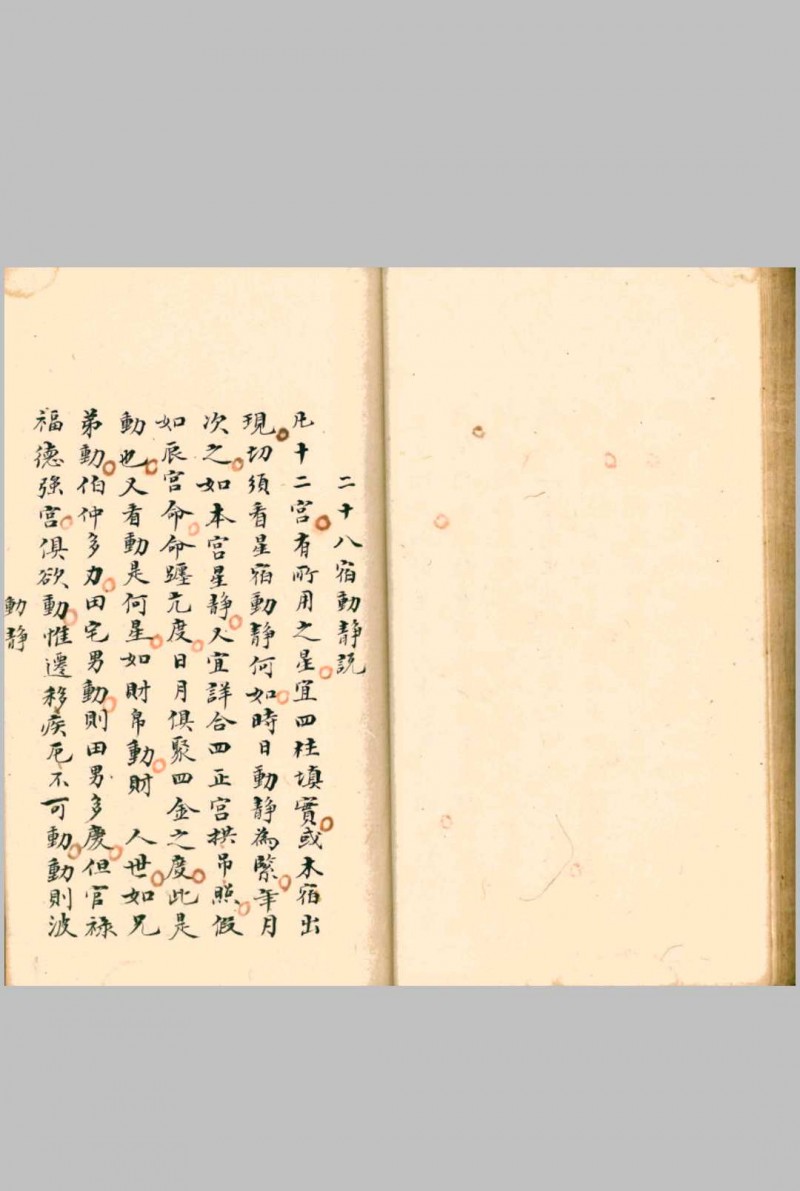 二十八宿動静説
凡十二宮有所用之星宜四柱填實或木宿出
現切須看星宿動静何如時日動静為緊年月
次之如本宮星静又宜詳合四正宮拱吊照假
如辰宮命命躔亢度日月俱聚四金之度此是
動也又看動是何星如財帛動財 人世如兄
弟動伯仲多力田宅男動則田男多慶但官祿
福德強宮俱欲動惟遷移疾厄不可動動則波
動静